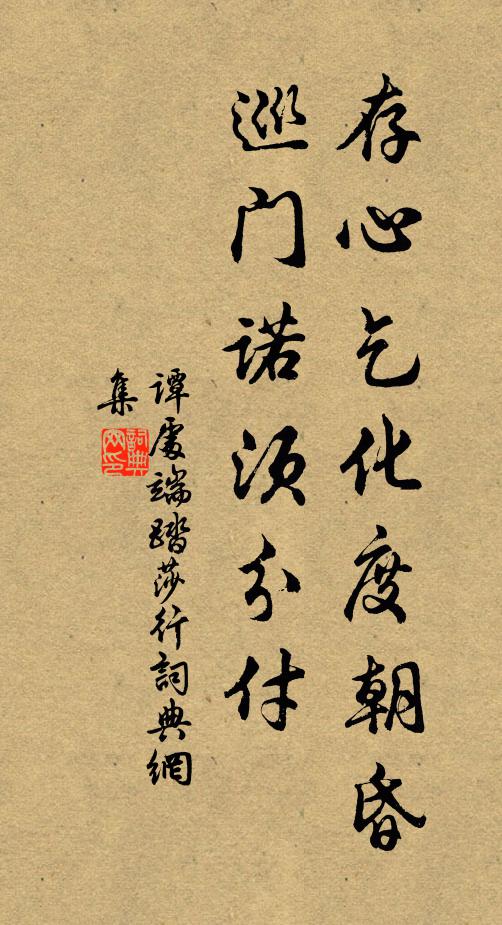 存心乞化度朝昏
巡门诺须分付
谭處端踏莎行詞典網
集
詞典网印